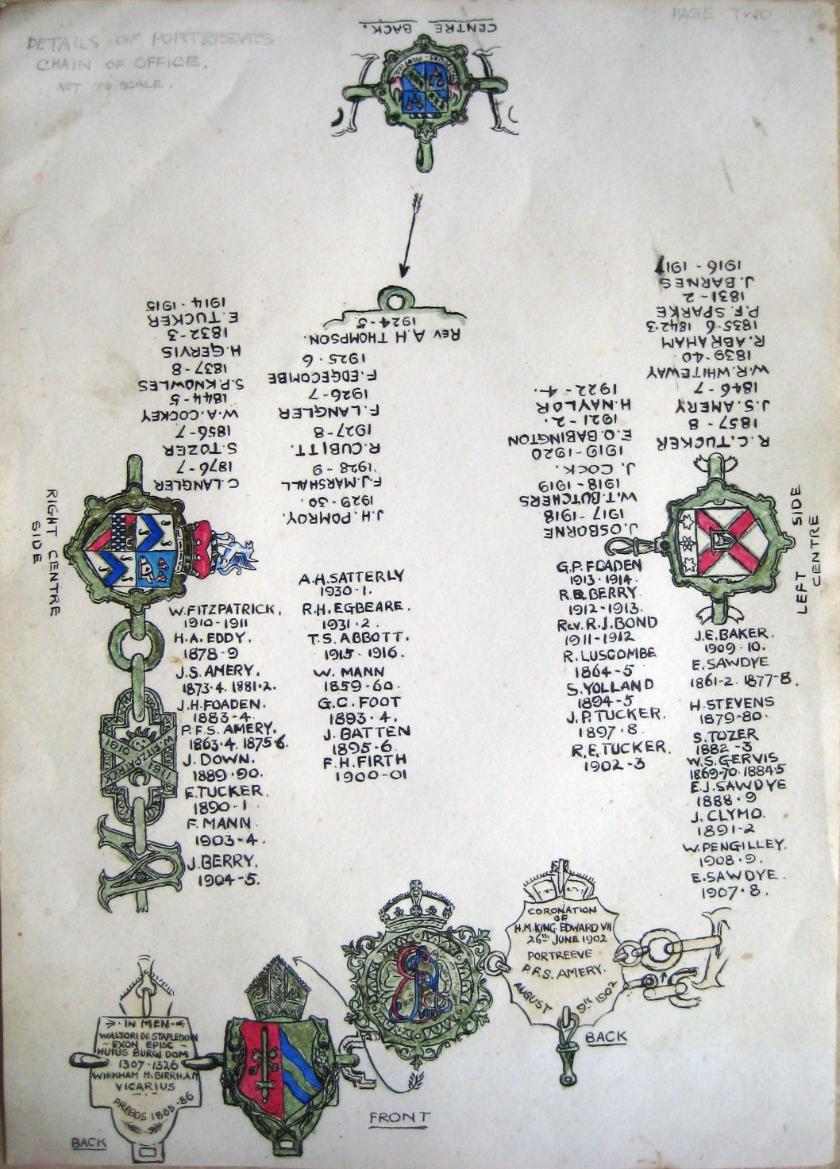 DETAILS OF PORTREEVES
CHAIN OF OFFICE.
NOT TO SCALE.
PAGE TWO
CENTRE BACK.
C. LANGLER
1876-7
S. TOZER
1856-7
W.A. COCKEY
1844-5
S.P. KNOWLES
1837-8
H. GERVIS
1832-3
E. TUCKER
1914-1915
J.H. POMROY.
1929-30
F.J. MARSHALL
1928-9
R. CUBITT.
1927-8
F. LANGLER
1926-7
F. EDGECOMBE
1925.6
REV A.H THOMPSON.
1924-5
J. OSBORNE
1917-1918
W.T. BUTCHERS
1918-1919
J. COCK.
1919-1920
E.O. BABINGTON
1921-2.
H. NAYLOR
1922-4.
R.C. TUCKER
1857-8
J.S. AMERY
1846-7
W.R. WHITEWAY
1839-40
R. ABRAHAM
1835-6 1842-3
P.F. SPARKE
1831-2
J. BARNES
1916-1917
RIGHT CENTRE
SIDE
LEFT CENTRE
SIDE
W. FITZPATRICK.
1910-1911
H.A. EDDY.
1878-9
J.S. AMERY.
1873-4. 1881-2.
J.H. FOADEN.
1883-4.
P.F.S. AMERY.
1863-4 1875-6
J. DOWN.
1889-90.
E. TUCKER.
1890-1
F. MANN
1903-4.
J. BERRY.
1904-5.
A.H. SATTERLY
1930-1.
R.H. EGBEARE.
1931-2.
T.S. ABBOTT.
1915-1916.
W. MANN
1859-60.
G.C. FOOT
1893-4.
J. BATTEN
1895-6.
F.H. FIRTH
1900-01
G.P. FOADEN
1913-1914.
R.B. BERRY.
1912-1913.
REV. R.J. BOND
1911-1912
R. LUSCOMBE
1864-5
S. YOLLAND
1894-5
J.P. TUCKER.
1897-8
R.E. TUCKER.
1902-3
J.E. BAKER.
1909-10.
E. SAWDYE
1861-2. 1877-8.
H. STEVENS
1879-80.
S. TOZER
1882-3
W.S. GERVIS
1869-70. 1884-5
E.J. SAWDYE
1888-9
J. CLYMO.
1891-2
W. PENGILLEY.
1908-9.
E. SAWDYE.
1907-8.
W. FITZPATRICK
1910
CORONATION
OF
H.M. KING EDWARD VII
26TH JUNE 1902
PORTREEVE
P.F.S. AMERY.
AUGUST 9TH 1902
BACK
IN MEM
WALTORI DE STAPLEDON
EXON EPISC
HUIUS BURGI DOM
1307-1326
WICKHAM M. BIRKHAM
VICARIUS
1885-86
BACK
FRONT